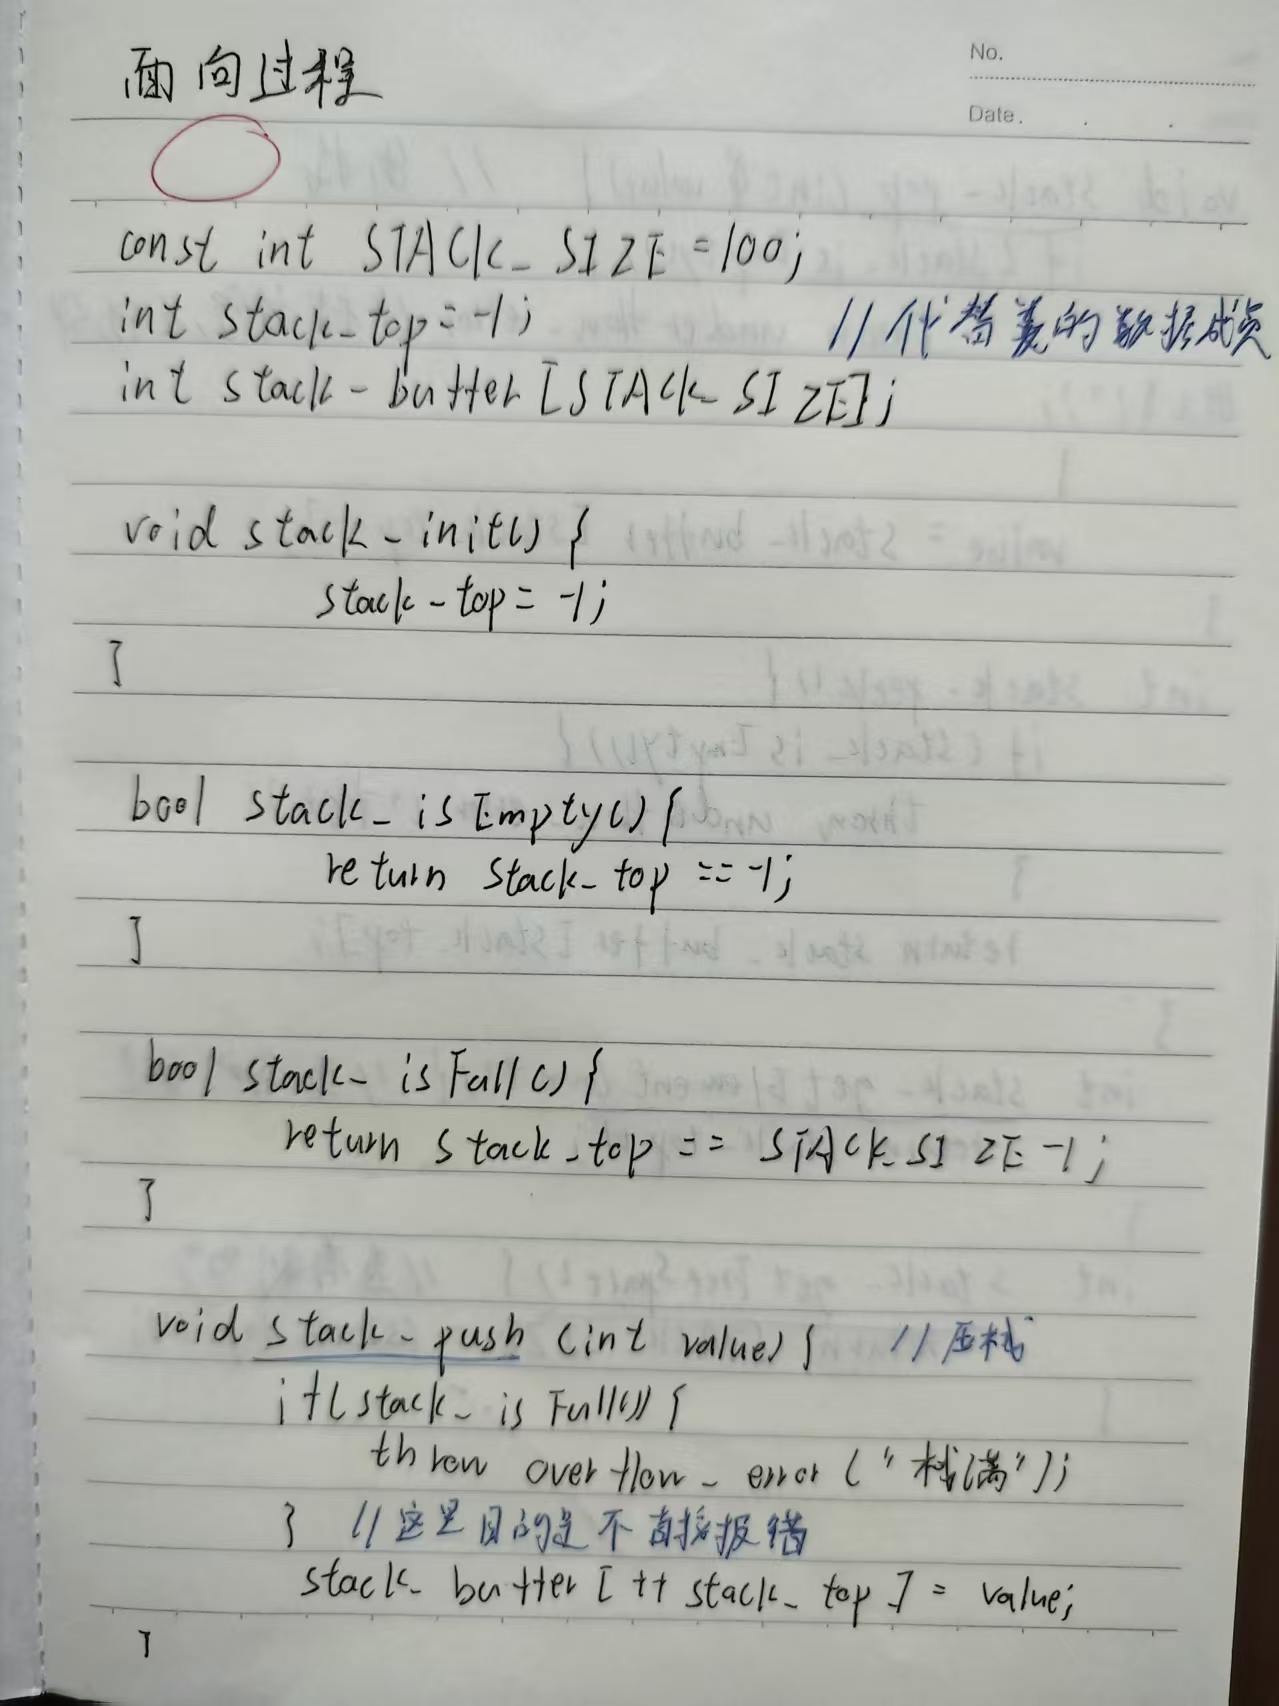 面向过程
No.
Date.
const int STACK_SIZE=100;
int stack_top=-1; //代替类的数据成员
int stack_buffer[STACK_SIZE];
void stack_init() {
stack_top=-1;
}
bool stack_isEmpty(){
return stack_top==-1;
}
bool stack_isFull(){
return stack_top == STACK_SIZE-1;
}
void stack_push (int value) { //压栈
if(stack_isFull()){
throw overflow_error("栈满");
} //这里目的是不直接报错
stack_buffer[++stack_top] = value;
}